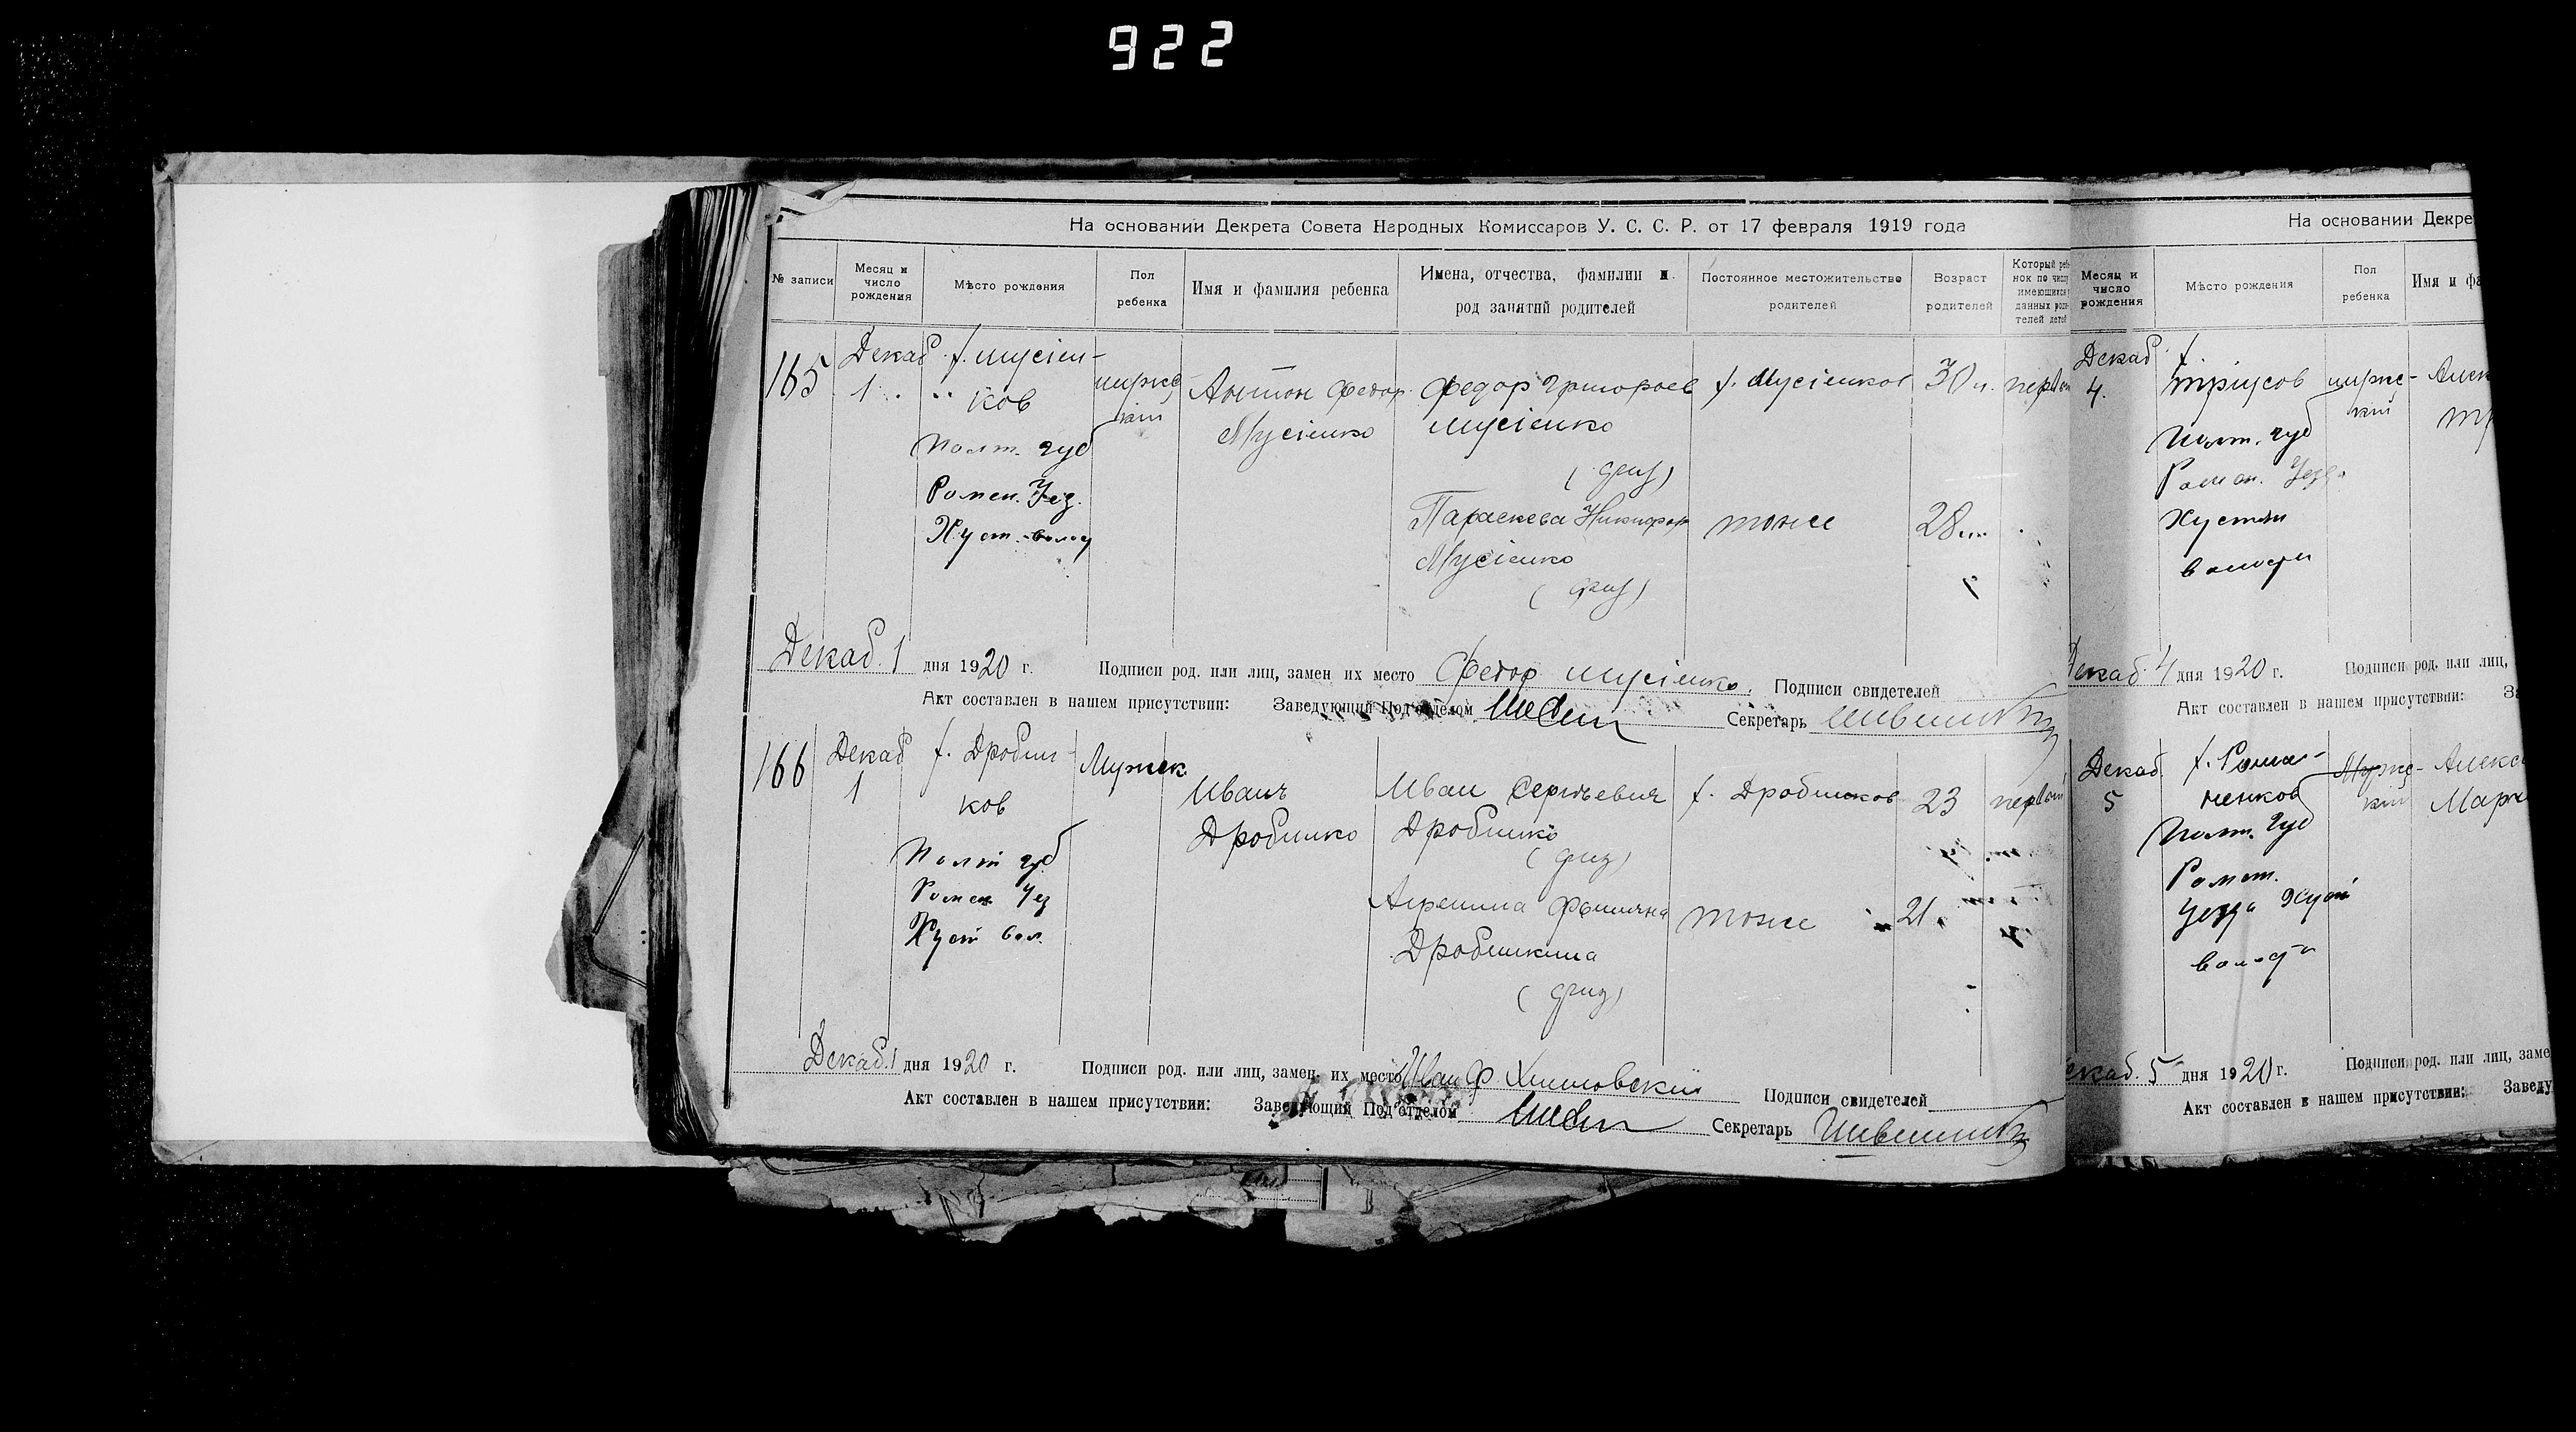 922
На основании Декрета Совета Народных Комиссаров У. С. С. Р. от 17 февраля 1919 года
№ записи
Месяц и число рождения
Мѣсто рождения
Пол ребенка
Имя и фамилия ребенка
Имена, отчества, фамилии и род занятий родителей
Постоянное местожительство родителей
Возраст родителей
Который ребе-
нок по числу
имеющихся у
данных роди-
телей детей
165
Декаб
1
х. Мусіен-
ков
Полт. губ
Ромен. Уез.
Хуст. волос
мужс
кій
Антон Федор
Мусіенко
Федор Григорьев
Мусіенко
Параскева Никифор
Мусіенко
х. Мусіенков
тоже
30
28
первый
Декаб. 1 дня 1920 г. Подписи род. или лиц, замен их место Федор Мусіенко. Подписи свидетелей
Акт составлен в нашем присутствии: Заведующий Под'отделом Секретарь
166
Декаб
1
х. Дробиш-
ков
Полт губ
Ромен Уез
Хуст вол.
Мужск
Иванъ
Дробишко
Иван Сергьевич
Дробишко
Агрепина
Дробишкина
х. Дробишков
тоже
23
21
первый
Декаб. 1 дня 1920 г. Подписи род. или лиц, замен. их место Иван Ф Подписи свидетелей
Акт составлен в нашем присутствии: Заведующий Под'отделом Секретарь
На основании Декре
Месяц и число рождения
Мѣсто рождения
Пол ребенка
Имя и фа
Декаб
4.
х.
Трусов
Полт. губ
Ромен. Уезд
Хустян
волости
мужс-
кій
Алек
Декаб. 4 дня 1920 г. Подписи род. или лиц,
Акт составлен в нашем присутствии: За
Декаб.
5
х. Рома-
ненков
Полт. Губ
Ромен.
Уезда Хуст
Мужс-
кій
Алекс
Марк
Декаб. 5 дня 1920 г. Подписи род. или лиц, заме
Акт составлен в нашем присутствии: Заведу